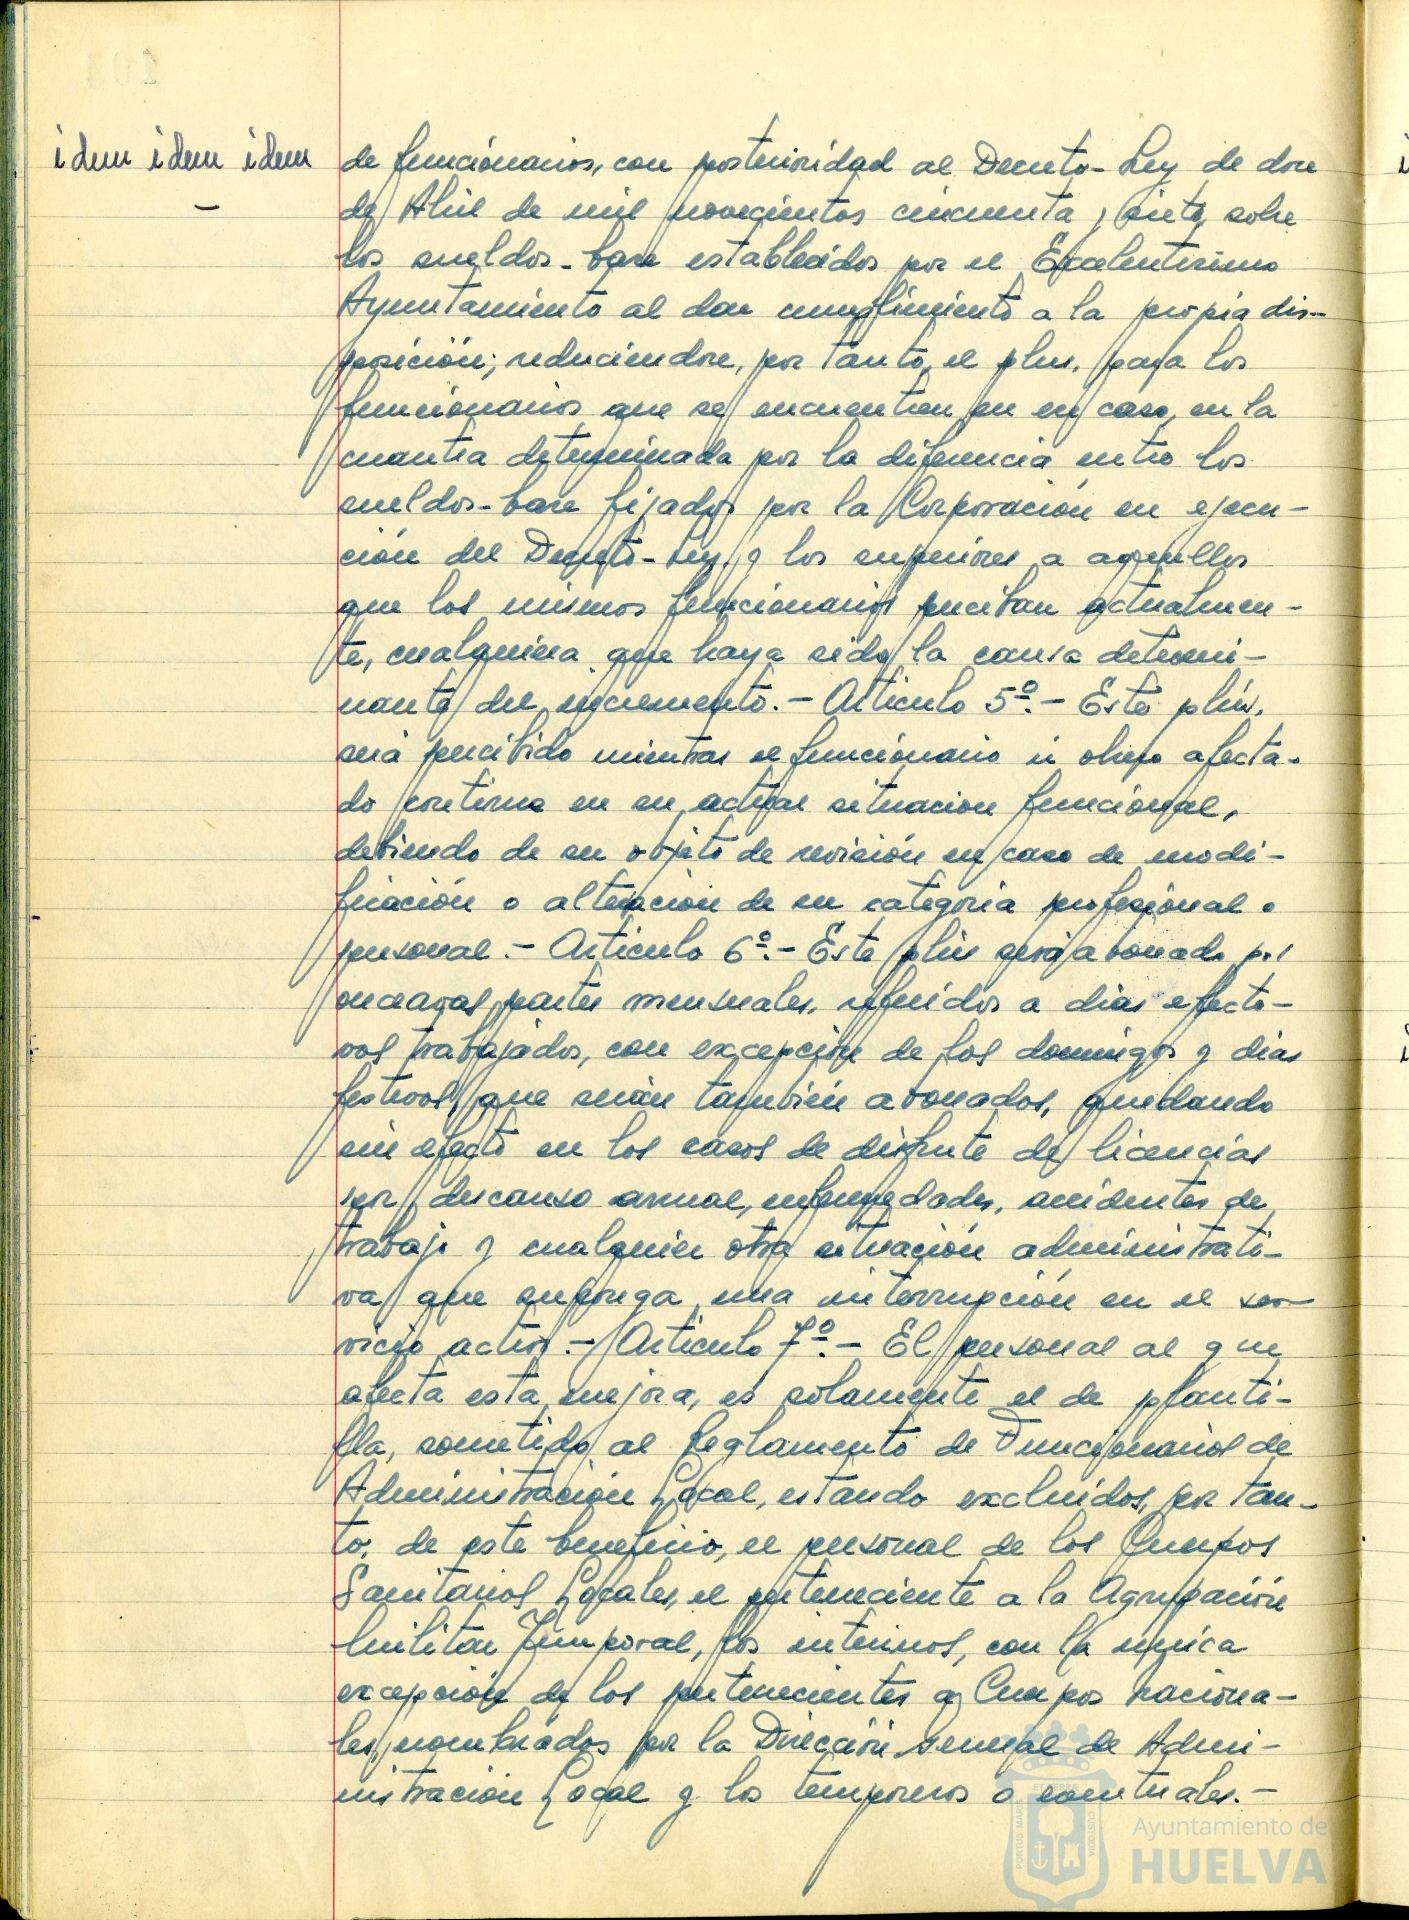 idem idem idem
de funcionarios, con posterioridad al Decreto-Ley de doce
de Abril de mil novecientos cincuenta y siete, sobre
los sueldos-base establecidos por el Excelentísimo
Ayuntamiento al dar cumplimiento a la propia dis-
posición; reduciendose, por tanto, el plus, para los
funcionarios que se encuentren en ese caso, en la
cuantia determinada por la diferencia entre los
sueldos-base fijados por la Corporación en ejecu-
ción del Decreto-Ley, y los superiores a aquellos
que los mismos funcionarios perciban actualmen-
te, cualquiera que haya sido la causa determi-
nante del incremento.- Articulo 5º.- Este plús,
será percibido mientras el funcionario ú obrero afecta-
do continue en su actual situacion funcional,
debiendo de ser objeto de revisión en caso de modi-
ficación o alteracion de su categoria profesional o
personal.- Articulo 6º.- Este plús será abonado por
onceavas partes mensuales, referidos a dias efecti-
vos trabajados, con excepción de los domingos y dias
festivos, que serán también abonados, quedando
sin efecto en los casos de disfrute de licencias
por descanso anual, enfermedades, accidentes de
trabajo y cualquier otra situación administrati-
va que suponga una interrupción en el ser-
vicio activo.- Articulo 7º.- El personal al que
afecta esta mejora, es solamente el de planti-
lla, sometido al Reglamento de Funcionarios de
Administración Local, estando excluidos, por tan-
to, de este beneficio, el personal de los Cuerpos
Sanitarios Locales, el perteneciente a la Agrupación
Militar Temporal, los interinos, con la unica
excepción de los pertenecientes a Cuerpos naciona-
les, nombrados por la Dirección General de Admi-
nistración Local y los temporeros o eventuales.-
PORTUS MARIS ET TERRE CUSTODIA
Ayuntamiento de
HUELVA